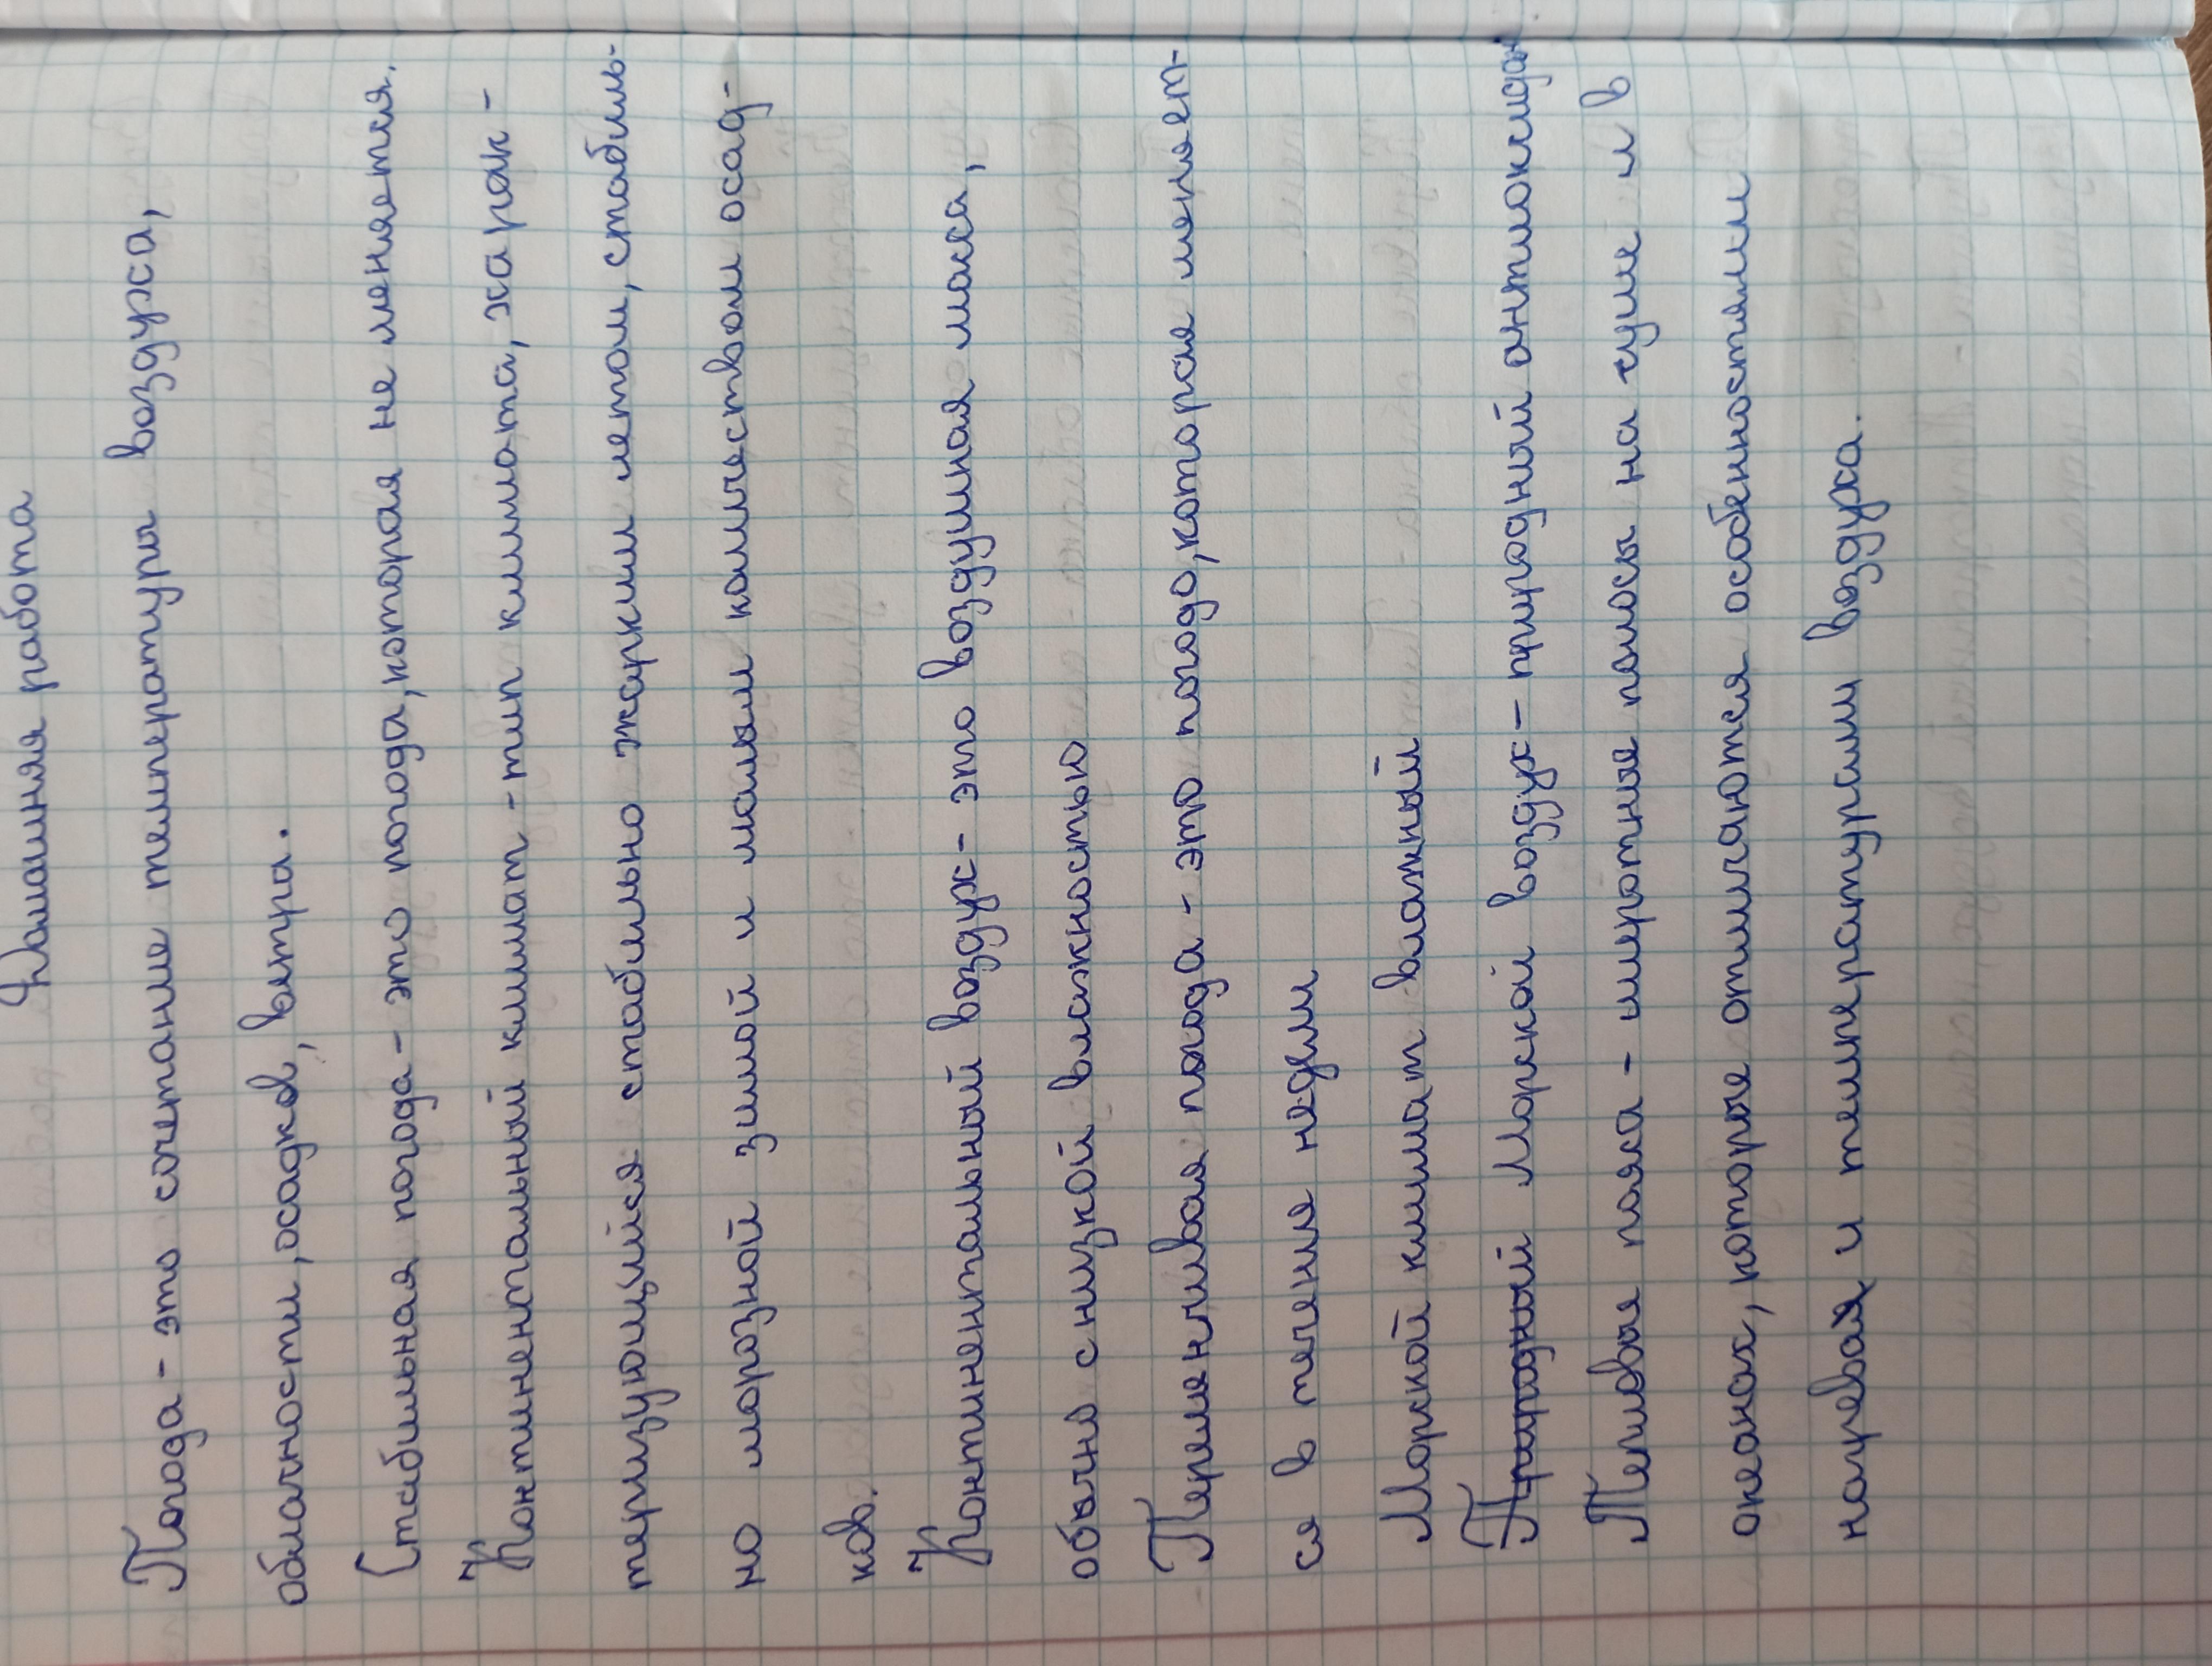 Домашняя работа
Погода - это сочетание температуры воздуха,
облачности, осадков, ветра.
Стабильная погода - это погода, которая не меняется.
Континентальный климат - тип климата, харак-
теризующийся стабильно жарким летом, стабиль-
но морозной зимой и малым количеством осад-
ков.
Континентальный воздух - это воздушная масса,
обычно с низкой влажностью
Переменчивая погода - это погода, которая меняет-
ся в течение недели
Морской климат влажный
Природный Морской воздух - природный антиоксидан
Тепловые пояса - широтные полосы на суше и в
океанах, которые отличаются особенностями
нагревая и температурами воздуха.